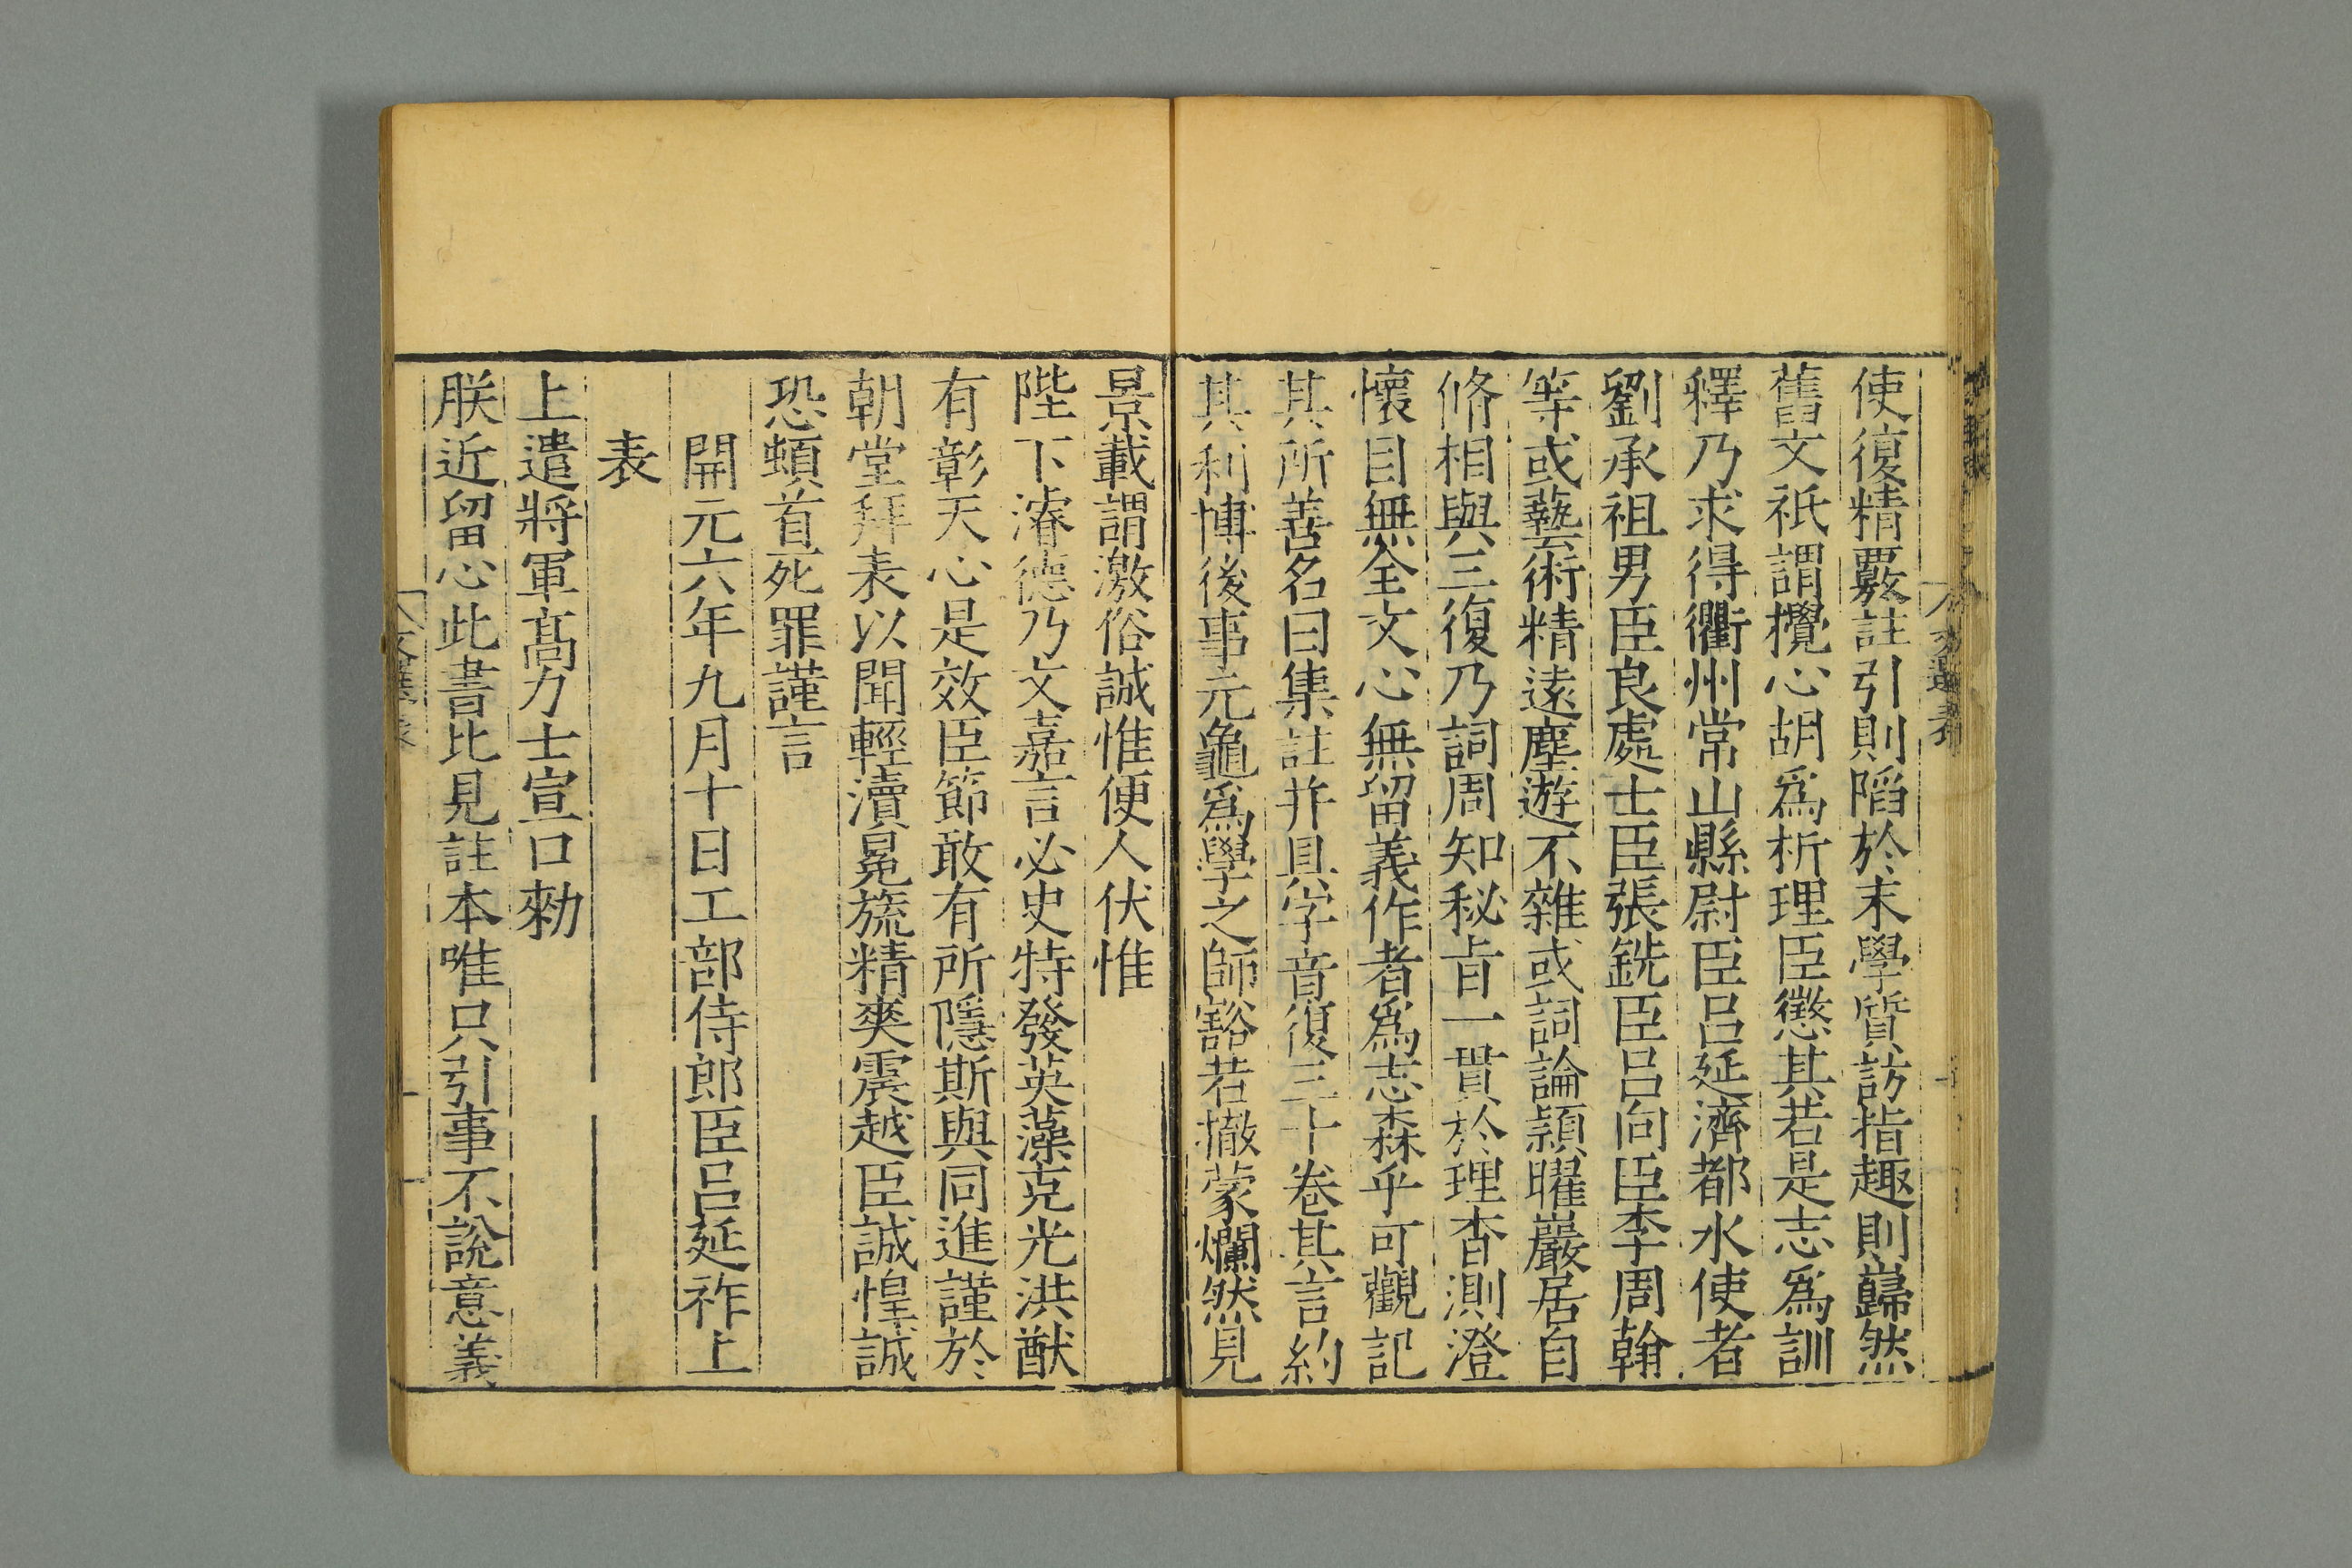 使復精覈註引則陷於末學質訪指趣則巋然
舊文祇謂攪心胡爲析理臣懲其若是志爲訓
釋乃求得衢州常山縣尉臣呂延濟都水使者
劉承祖男臣良處士臣張銑臣呂向臣李周翰
等或藝術精逺塵遊不雜或詞論頴曜巖居自
脩相與三復乃詞周知秘旨一貫於理杳測澄
懷目無全文心無留義作者爲志森乎可觀記
其所善名曰集註并具字音復三十卷其言約
其利博後事元龜爲學之師豁若撤蒙爛然見
景載謂激俗誠惟便人伏惟
陛下濬德乃文嘉言必史特發英藻克光洪猷
有彰天心是效臣節敢有所隱斯與同進謹於
朝堂拜表以聞輕瀆冕旒精爽震越臣誠惶誠
恐頓首死罪謹言
開元六年九月十日工部侍郎臣呂延祚上
表
上遣將軍髙力士宣口勑
朕近留心此書比見註本唯只引事不說意義